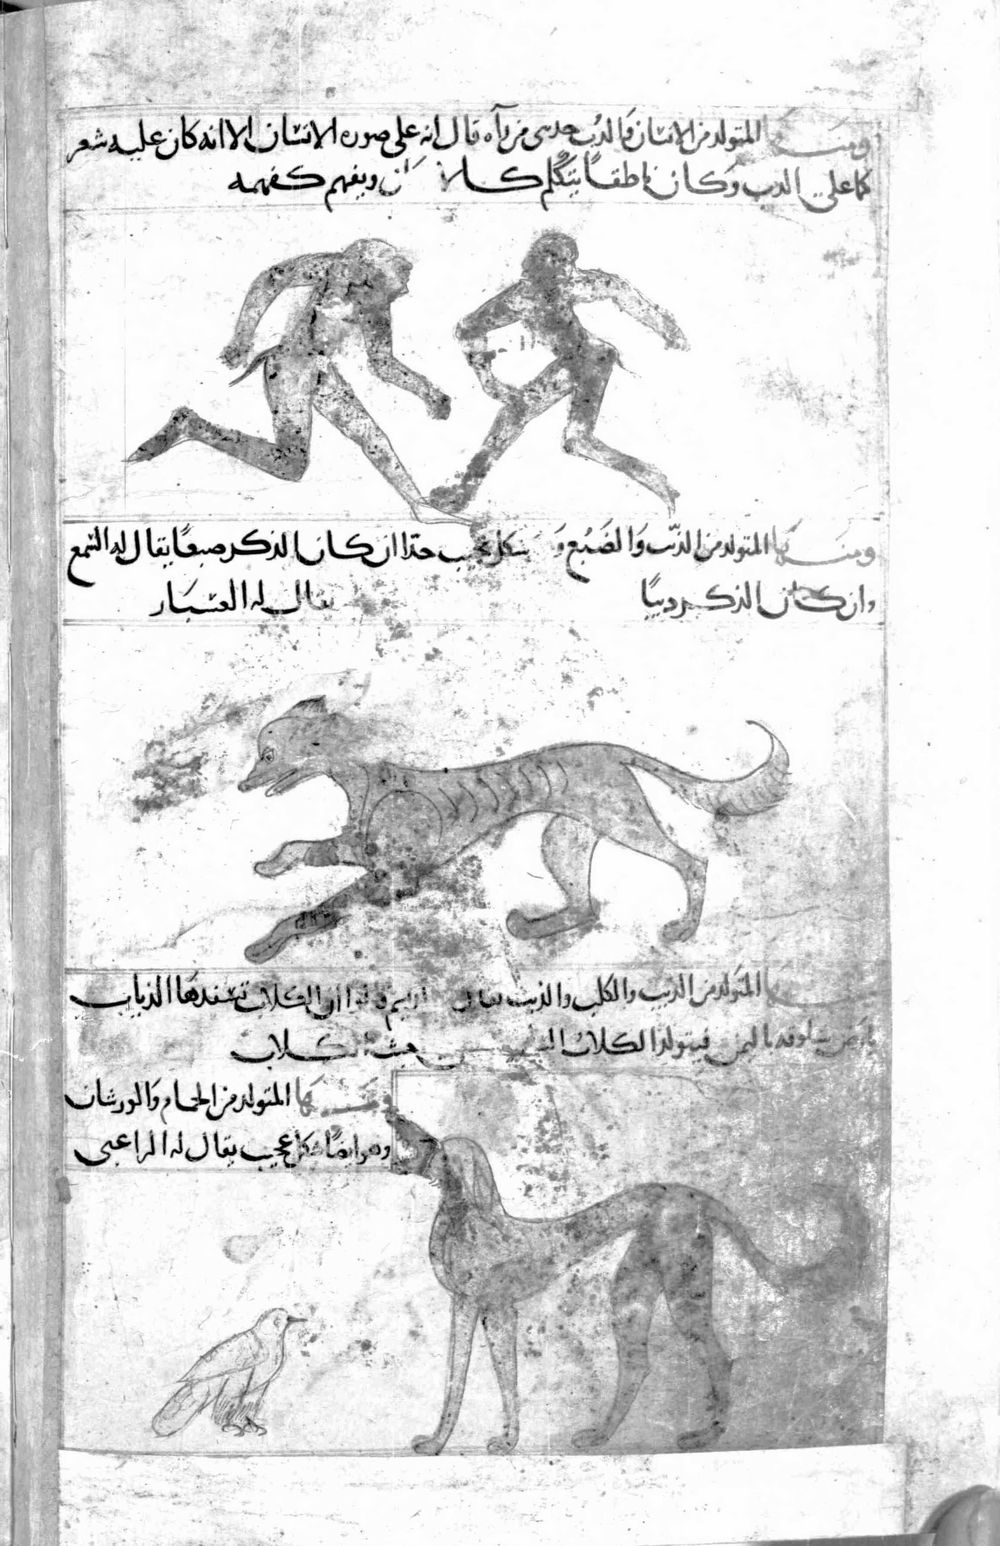 ومنها المتولد من الانسان والدب حدثني من رآه قال انه على صورة الانسان الا انه كان عليه شعر
كما على الدب وكان ناطقا يتكلم ويفهم كفهمه
ومنها المتولد من الذئب والضبع شكل عجيب جدا ان كان الذكر ضبعا يقال له السمع
وان كان الذكر ذيبا يقال له العسبار
المتولد من الذيب والكلب والذيب الكلاب تسفدها الذياب
باليمن فيتولد الكلاب الكلاب
ومنها المتولد من الحمام والورشان
وهو ايضا شكل عجيب يقال له الراعبي